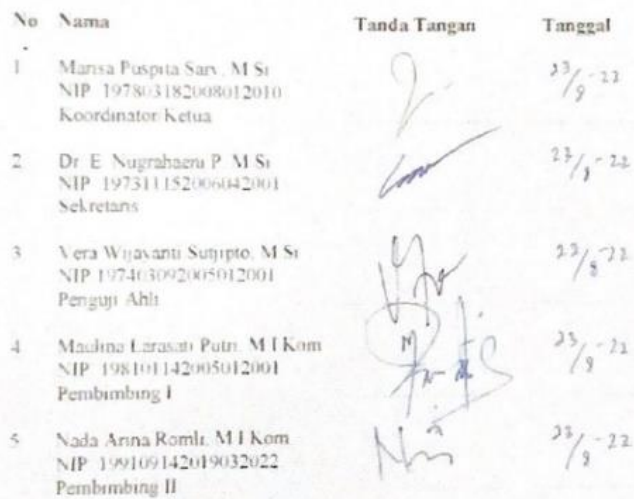 No Nama Tanda Tangan Tanggal
1 Marisa Puspita Sary, M Si 23/8-22
NIP 197803182008012010
Koordinator Ketua
2 Dr E Nugrahaeni P M Si 23/8-22
NIP 197311152006042001
Sekretaris
3 Vera Wijayanti Sutjipto, M Si 23/8-22
NIP 197403092005012001
Penguji Ahli
4 Maulina Larasati Putri, M I Kom 23/8-22
NIP 198101142005012001
Pembimbing I
5 Nada Arina Romli, M I Kom 23/8-22
NIP 199109142019032022
Pembimbing II